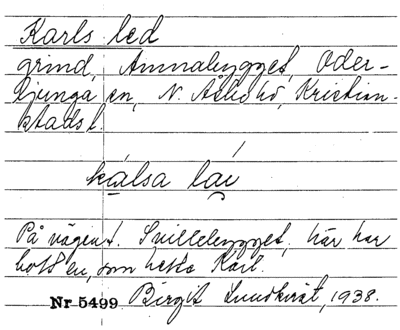 Karls led
grind, Annabygget, Oder-
ljunga sn, N. Åsbo hd, Kristian-
stads l.
kálsa lái
På vägen t. Svillebygget, här har
bott en, som hette Karl.
Nr 5499 Birgit Lundkvist, 1938.